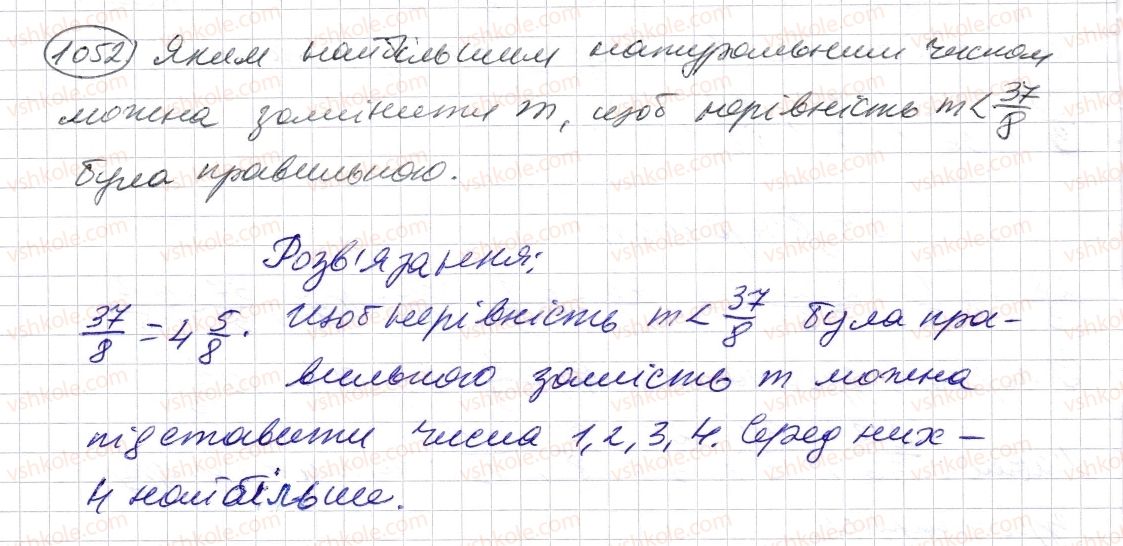 1052) Яким найбільшим натуральним числом
можна замінити m, щоб нерівність m < 37/8
була правильною.
Розв'язання:
37/8 = 4 5/8. Щоб нерівність m < 37/8 була пра-
вильною замість m можна
підставити числа 1, 2, 3, 4. Серед них –
4 найбільше.